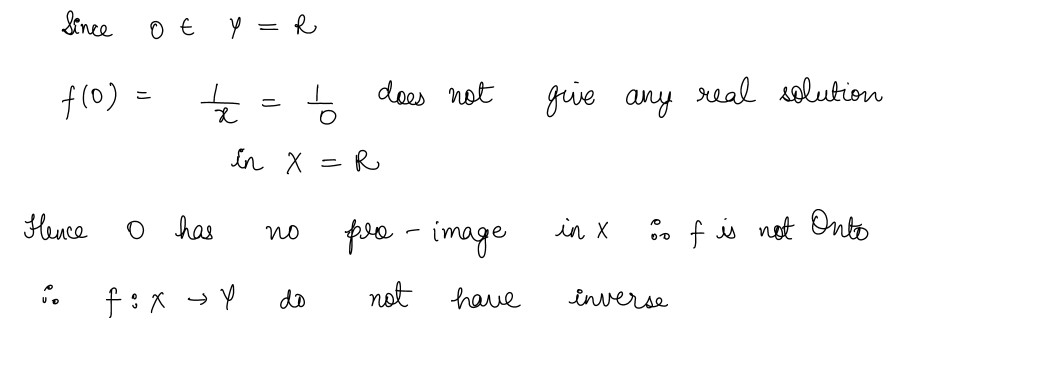 Since 0 ∈ Y = R
f(0) = 1/x = 1/0 does not give any real solution
in X = R
Hence 0 has no pre-image in X ∴ f is not Onto
∴ f : X → Y do not have inverse